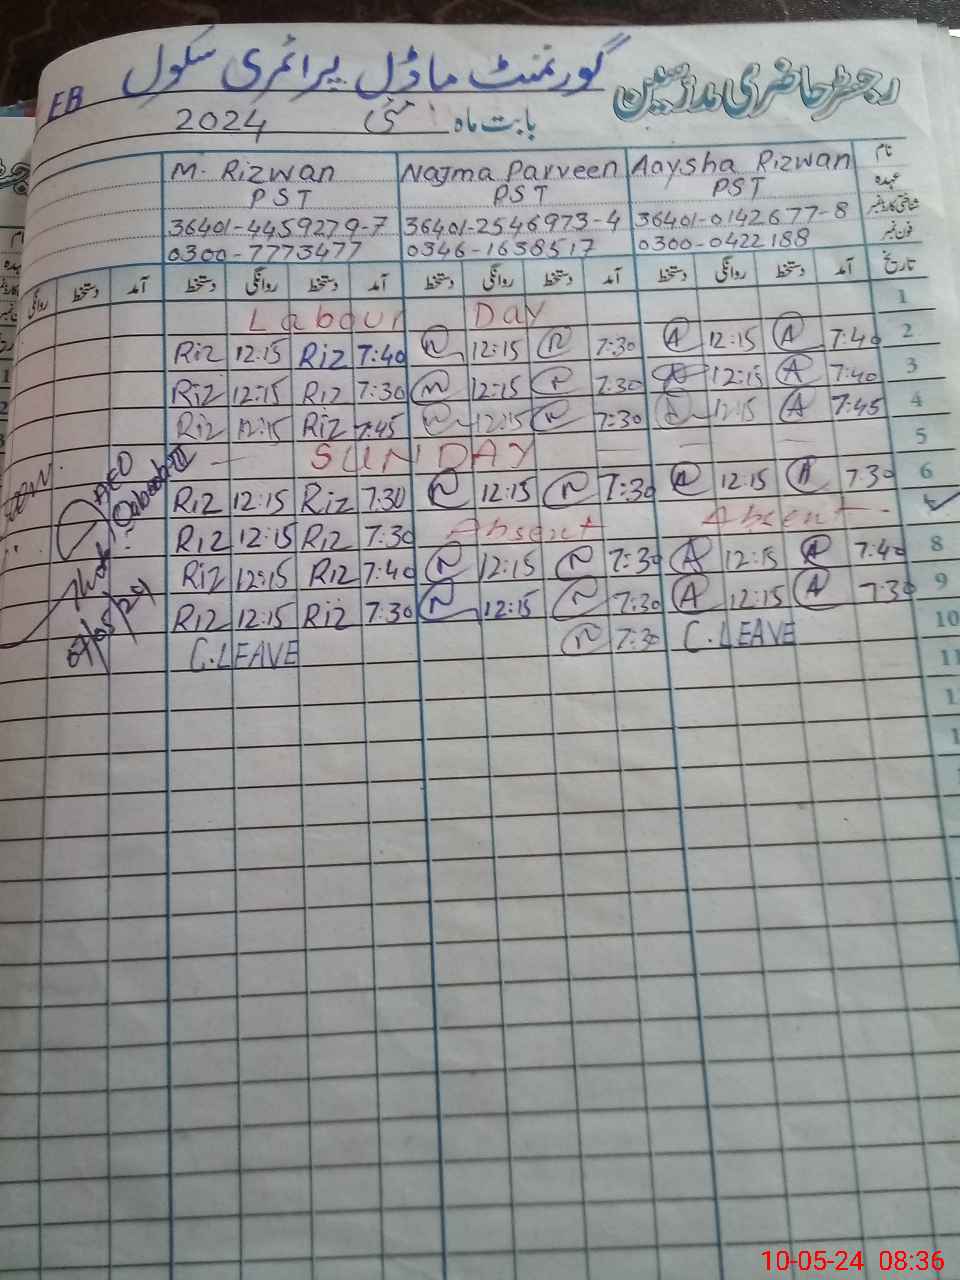 رجسٹر حاضری ملازمین گورنمنٹ ماڈل پرائمری سکول
EB
بابت ماہ مئی 2024
نام M. Rizwan Najma Parveen Aaysha Rizwan
عہدہ PST PST PST
شناختی کارڈ نمبر 36401-4459279-7 36401-2546973-4 36401-0142677-8
فون نمبر 0300-7773477 0346-1638517 0300-0422188
تاریخ آمد دستخط روانگی دستخط آمد دستخط روانگی دستخط آمد دستخط روانگی دستخط آمد دستخط روانگی
Labour Day 1
Riz 12:15 Riz 7:40 N 12:15 N 7:30 A 12:15 A 7:40 2
Riz 12:15 Riz 7:30 N 12:15 N 7:30 A 12:15 A 7:40 3
Riz 12:15 Riz 7:45 N 12:15 N 7:30 A 12:15 A 7:45 4
SUNDAY 5
Riz 12:15 Riz 7:30 N 12:15 N 7:30 A 12:15 A 7:30 6
Riz 12:15 Riz 7:30 Absent Absent
Riz 12:15 Riz 7:40 N 12:15 N 7:30 A 12:15 A 7:40 8
Riz 12:15 Riz 7:30 N 12:15 N 7:30 A 12:15 A 7:30 9
C.LEAVE N 7:30 C.LEAVE 10
11
AEO
10-05-24 08:36